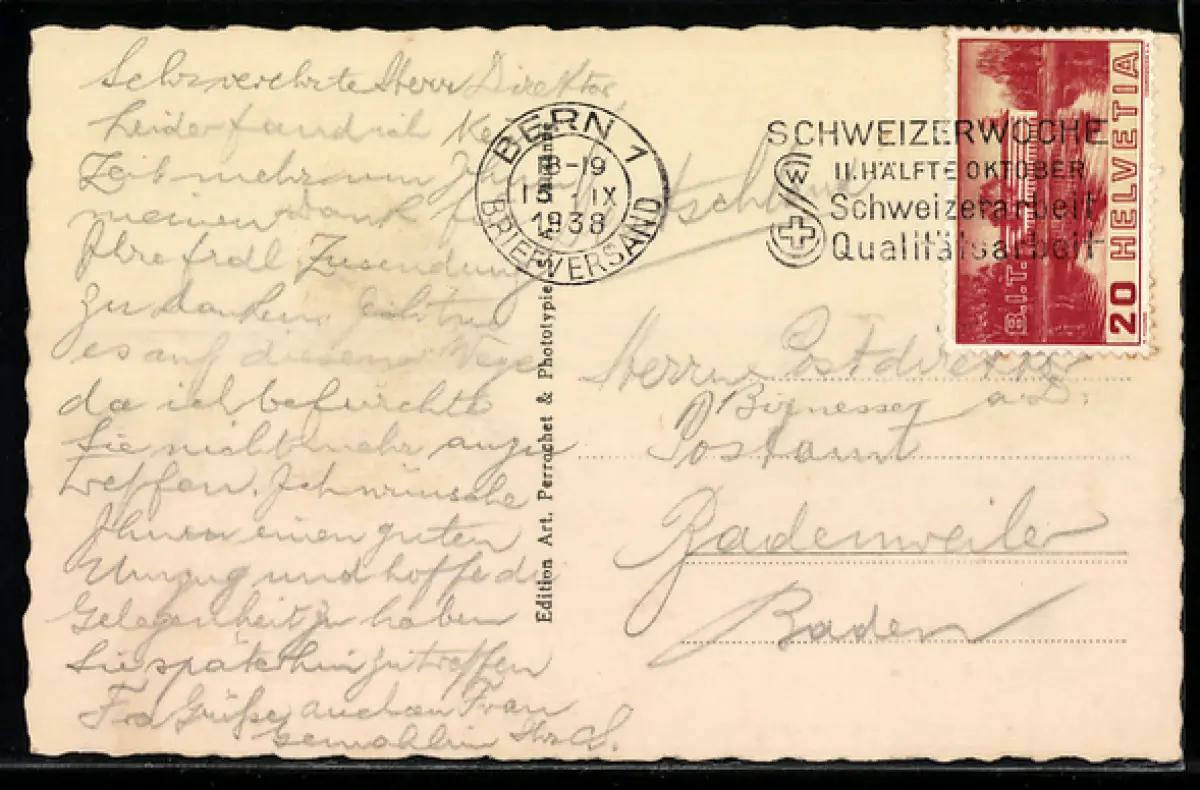 Sehr verehrte Herr Direktor,
Leider fand ich
Zeit mehr um Ihnen
meinen Dank für
Ihre frdl. Zusendung
zu danken.
es auf diesem Wege
da ich befürchte
Sie nicht mehr anzu
treffen. Ich wünsche
Ihnen einen guten
Umzug und hoffe die
Gelegenheit zu haben
Sie späterhin zu treffen
Grüße, auch an Frau
Gemahlin
BERN 1
8-19
IX
1938
BRIEFVERSAND
SCHWEIZERWOCHE
II. HÄLFTE OKTOBER
Schweizerarbeit
Qualitätsarbeit
B.I.T.
20 HELVETIA
Edition Art. Perrochet & Phototypie
Herrn Postdirektor
a.D.
Postamt
Badenweiler
Baden